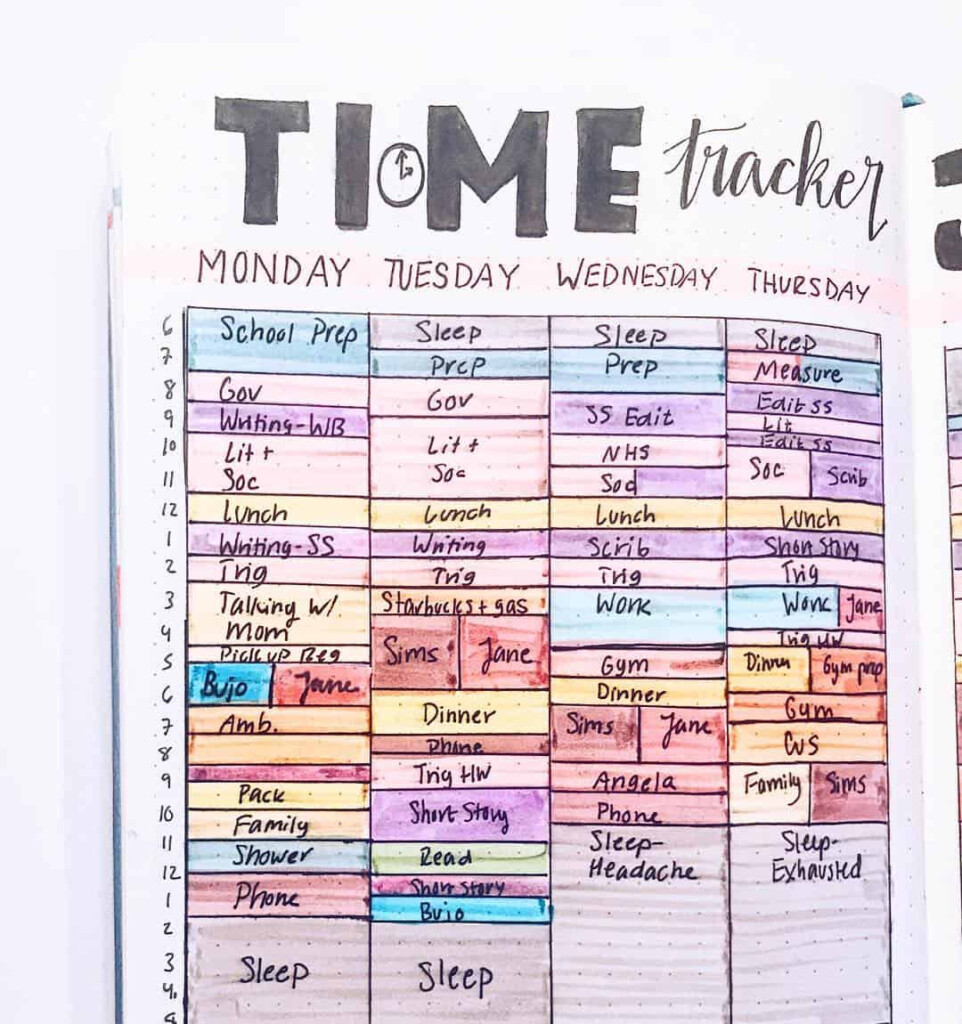 TIME tracker
MONDAY TUESDAY WEDNESDAY THURSDAY
6
7
8
9
10
11
12
1
2
3
4
5
6
7
8
9
10
11
12
1
2
3
4
School Prep
Gov
Writing-WB
Lit +
Soc
Lunch
Writing-SS
Trig
Talking w/
Mom
Pick up Reg
Bujo Jane
Amb.
Pack
Family
Shower
Phone
Sleep
Sleep
Prep
Gov
Lit +
Soc
Lunch
Writing
Trig
Starbucks + gas
Sims Jane
Dinner
Phone
Trig HW
Short Story
Read
Short Story
Bujo
Sleep
Sleep
Prep
SS Edit
NHS
Soc
Lunch
Scrib
Trig
Work
Gym
Dinner
Sims Jane
Angela
Phone
Sleep-
Headache
Sleep
Measure
Edit SS
Lit
Edit SS
Soc Scrib
Lunch
Short Story
Trig
Work Jane
Trig HW
Dinner Gym prep
Gym
CVS
Family Sims
Sleep-
Exhausted